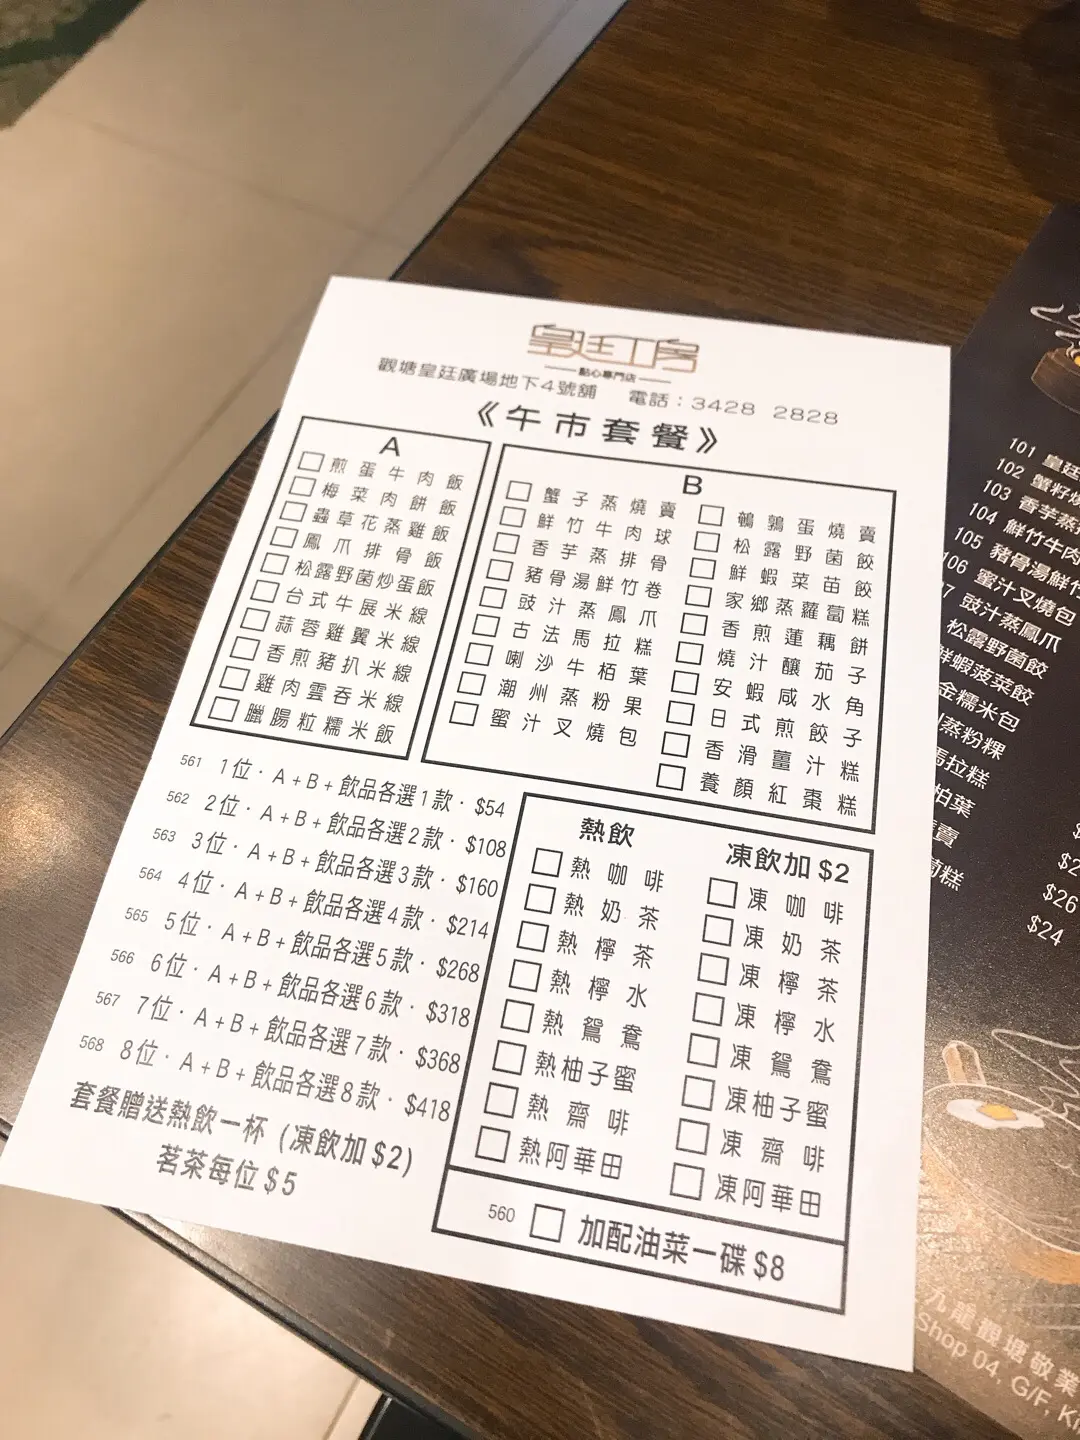 皇廷工房
點心專門店
觀塘皇廷廣場地下4號舖 電話：3428 2828
《午市套餐》
A
煎蛋牛肉飯
梅菜肉餅飯
蟲草花蒸雞飯
鳳爪排骨飯
松露野菌炒蛋飯
台式牛展米線
蒜蓉雞翼米線
香煎豬扒米線
雞肉雲吞米線
臘腸粒糯米飯
B
蟹子蒸燒賣
鮮竹牛肉球
香芋蒸排骨
豬骨湯鮮竹卷
豉汁蒸鳳爪
古法馬拉糕
喇沙牛栢葉
潮州蒸粉果
蜜汁叉燒包
鵪鶉蛋燒賣
松露野菌餃
鮮蝦菜苗餃
家鄉蒸蘿蔔糕
香煎蓮藕餅
燒汁釀茄子
安蝦咸水角
日式煎餃子
香滑薑汁糕
養顏紅棗糕
561 1位．A+B+飲品各選1款．$54
562 2位．A+B+飲品各選2款．$108
563 3位．A+B+飲品各選3款．$160
564 4位．A+B+飲品各選4款．$214
565 5位．A+B+飲品各選5款．$268
566 6位．A+B+飲品各選6款．$318
567 7位．A+B+飲品各選7款．$368
568 8位．A+B+飲品各選8款．$418
套餐贈送熱飲一杯（凍飲加$2）
茗茶每位$5
熱飲
熱咖啡
熱奶茶
熱檸茶
熱檸水
熱鴛鴦
熱柚子蜜
熱齋啡
熱阿華田
凍飲加$2
凍咖啡
凍奶茶
凍檸茶
凍檸水
凍鴛鴦
凍柚子蜜
凍齋啡
凍阿華田
560 加配油菜一碟$8
101 皇廷
102 蟹籽
103 香芋蒸
104 鮮竹牛肉
105 豬骨湯鮮竹
106 蜜汁叉燒包
7 豉汁蒸鳳爪
松露野菌餃
鮮蝦菠菜餃
金糯米包
蒸粉粿
馬拉糕
柏葉
賣
糕
$26
$24
九龍觀塘敬業
Shop 04, G/F,